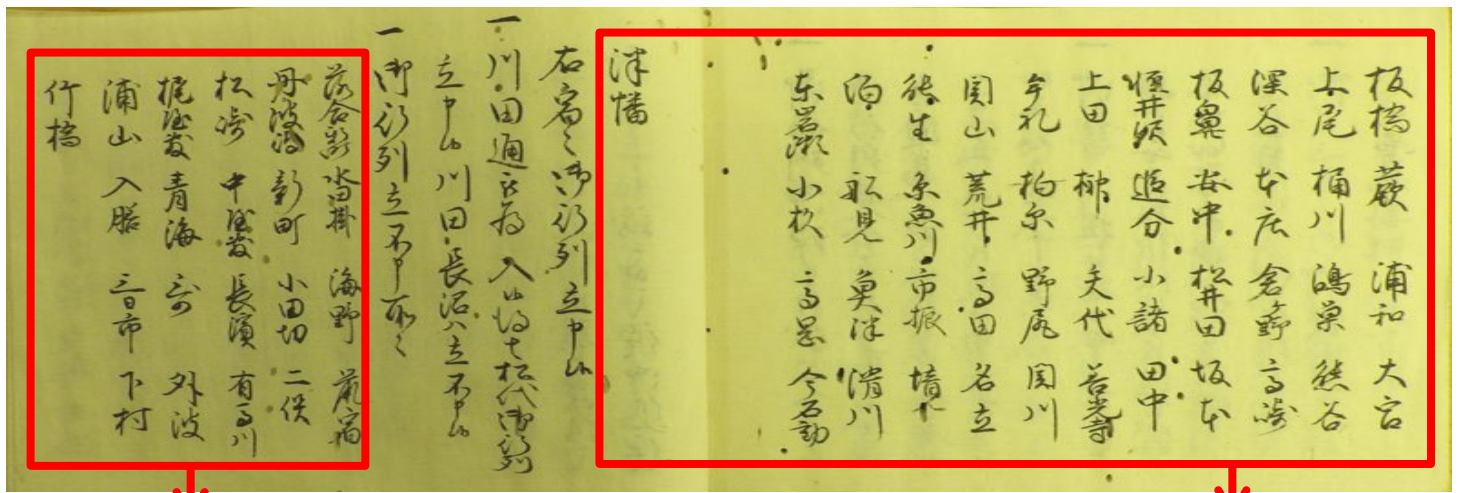 板橋 蕨 浦和 大宮
上尾 桶川 鴻巣 熊谷
深谷 本庄 倉ヶ野 高崎
板鼻 安中 松井田 坂本
軽井沢 追分 小諸 田中
上田 榊 矢代 善光寺
牟礼 柏原 野尻 関川
関山 荒井 高田 名立
能生 糸魚川 市振 境
泊 船見 魚津 滑川
東岩瀬 小杉 高岡 今石動
津幡
右宿々御行列立申候
一 川田通 入候
立申候 川田長沼ハ立不申候
一 御行列立不申所々
落合新 沓掛 海野 荒宿
丹波嶋 新町 小田切 二俣
松崎 中屋敷 長濱 有間川
梶屋敷 青海 歌 外波
浦山 入膳 三日市 下村
竹橋